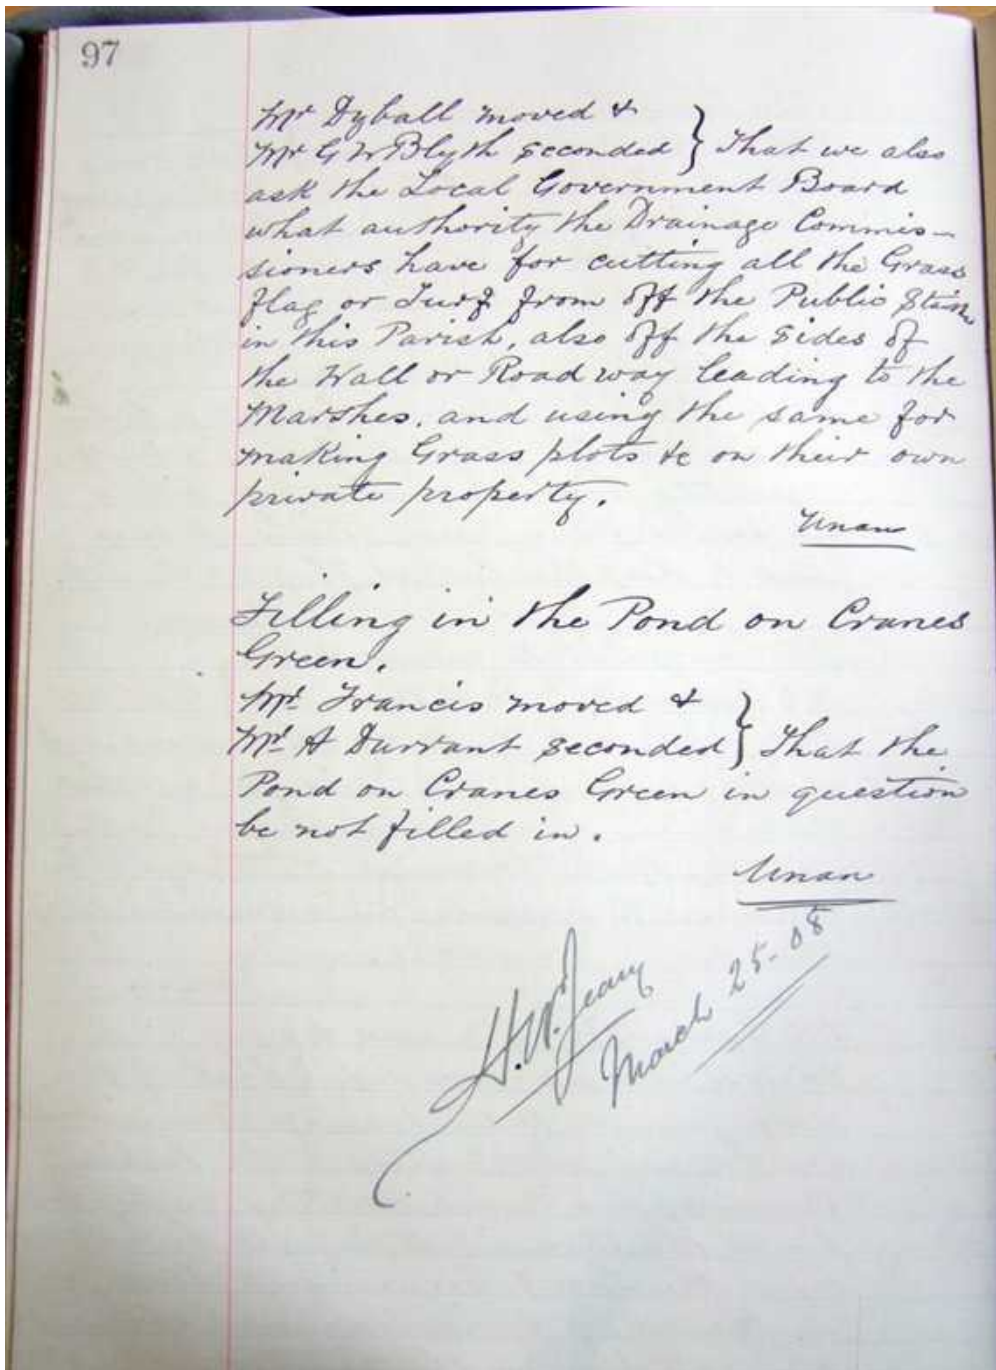 97
Mr Dyball moved &
Mr G W Blyth seconded } That we also
ask the Local Government Board
what authority the Drainage Commis-
sioners have for cutting all the Grass
flag or Turf from off the Public Staithe
in this Parish, also off the sides of
the Wall or Road way leading to the
Marshes, and using the same for
making Grass plots &c on their own
private property.
Unan
Filling in the Pond on Cranes
Green.
Mr Francis moved &
Mr A Durrant seconded } That the
Pond on Cranes Green in question
be not filled in.
Unan
H. W. Jeary
March 25-08